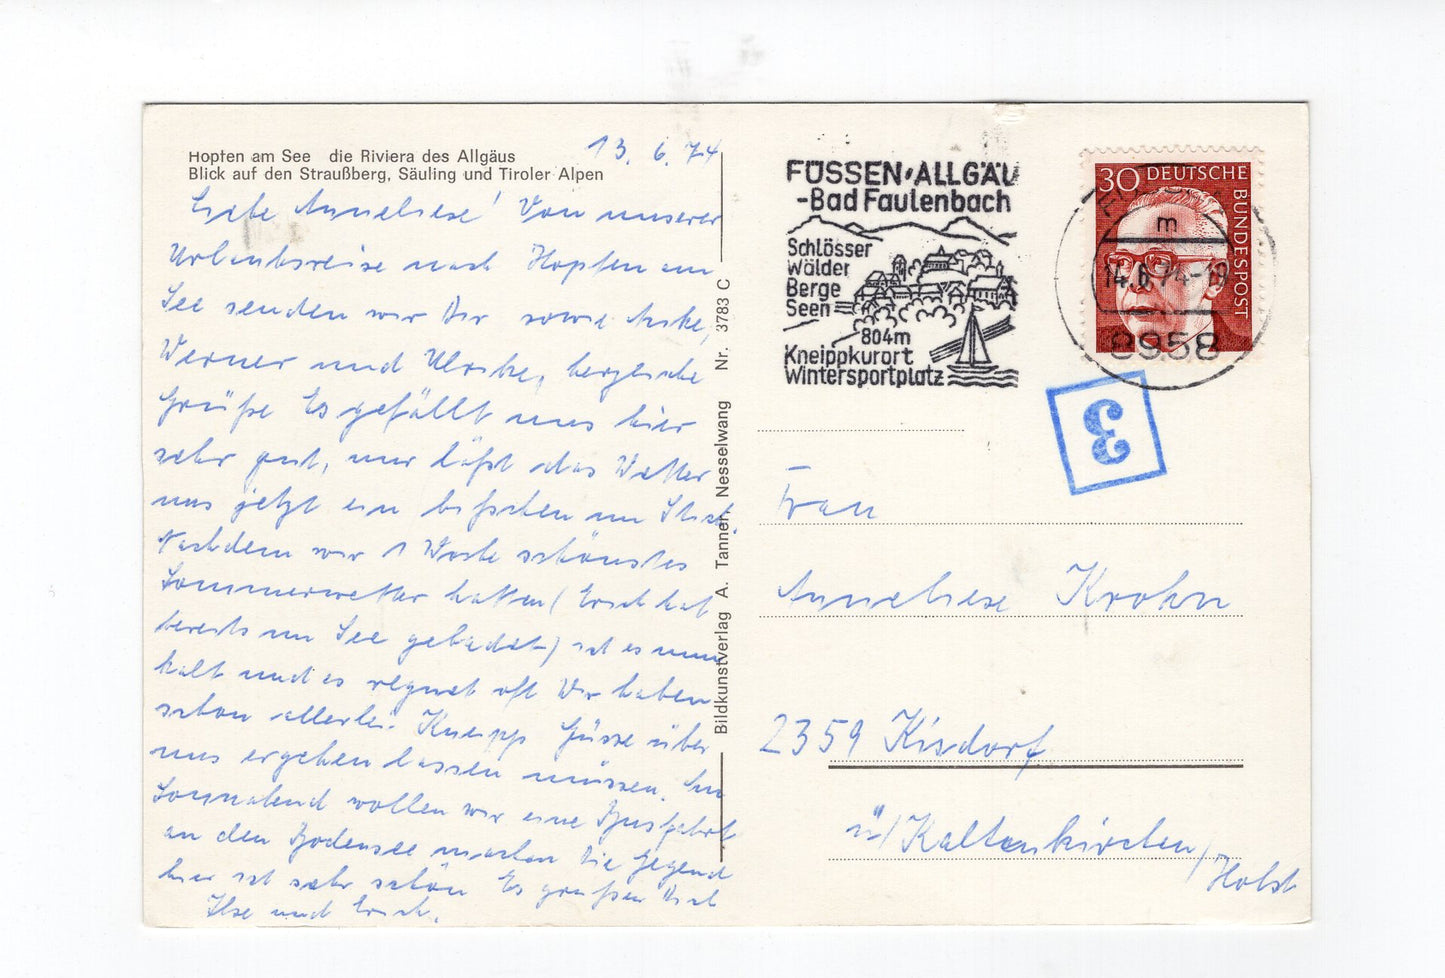 Hopfen am See die Riviera des Allgäus
Blick auf den Straußberg, Säuling und Tiroler Alpen
13. 6. 74
Liebe Anneliese! Von unserer
Urlaubsreise nach Hopfen am
See senden wir Dir sowie
Werner und Ulrike, herzliche
Grüße Es gefällt uns hier
sehr gut, nur läßt das Wetter
uns jetzt ein bißchen im Stich.
Nachdem wir 1 Woche schönstes
Sommerwetter hatten (Erich hat
bereits im See gebadet) ist es nun
kalt und es regnet oft Wir haben
schon allerlei Kneipp Güsse über
uns ergehen lassen müssen. Am
Sonnabend wollen wir eine Busfahrt
an den Bodensee machen Die Gegend
hier ist sehr schön Es grüßen Dich
Ilse und Erich.
Bildkunstverlag A. Tanner, Nesselwang Nr. 3783 C
FÜSSEN·ALLGÄU
-Bad Faulenbach
Schlösser
Wälder
Berge
Seen
804m
Kneippkurort
Wintersportplatz
30 DEUTSCHE
BUNDESPOST
m
14.6.74-18
8958
3
Frau
Anneliese Krohn
2359 Kisdorf
ü/Kaltenkirchen/
Holst